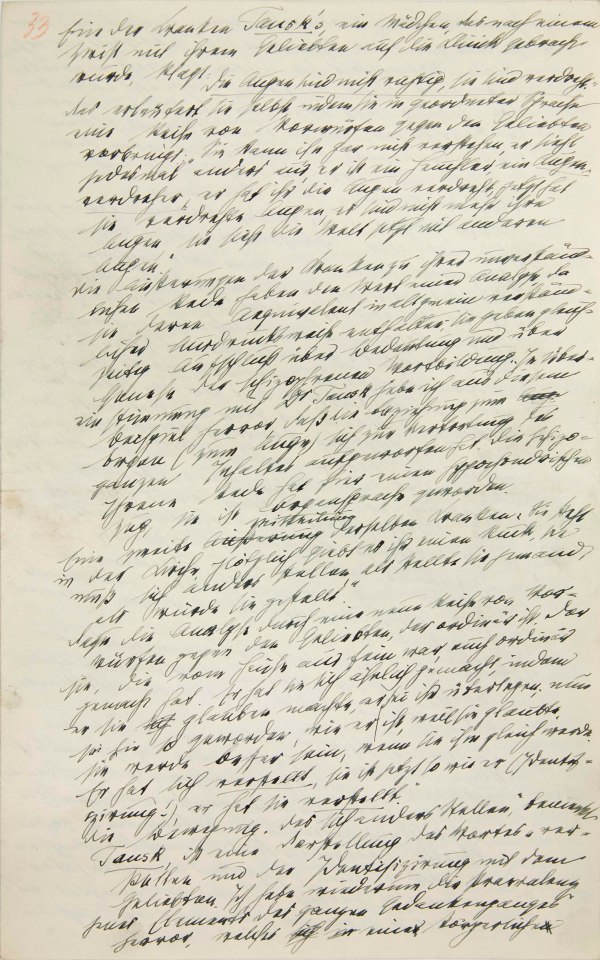 33
Eine der Kranken Tausk's, ein Mädchen, das nach einem
Zwist mit ihrem Geliebten auf die Klinik gebracht
wurde, klagt:
Die Augen sind nicht richtig, sie sind verdreht.
Das erläutert sie selbst indem sie in geordneter Sprache
eine Reihe von Vorwürfen gegen den Geliebten
vorbringt. „Sie kann ihn gar nicht verstehen, er sieht
jedesmal anders aus, er ist ein Heuchler, ein Augen-
verdreher, er hat ihr die Augen verdreht, jetzt hat
sie verdrehte Augen, es sind nicht mehr ihre
Augen, sie sieht die Welt jetzt mit anderen
Augen“
Die Äußerungen der Kranken zu ihrer unverständ-
lichen Rede haben den Wert einer Analyse, da
sie deren Aequivalent in allgemein verständ-
licher Ausdrucksweise enthalten; sie geben gleich-
zeitig Aufschluß über Bedeutung und über
Genese der schizophrenen Wortbildung. In Über-
einstimmung mit Tausk hebe ich aus diesem
Beispiel hervor, daß die Beziehung zum
Organ (zum Auge) sich zur Vertretung des
ganzen Inhaltes aufgeworfen hat. Die schizo-
phrene Rede hat hier einen hypochondrischen
Zug, sie ist Organsprache geworden.
Eine zweite Mitteilung derselben Kranken: Sie steht
in der Kirche, plötzlich giebt es ihr einen Ruck, sie
muß sich anders stellen, als stellte sie jemand,
als würde sie gestellt.“
Dazu die Analyse durch eine neue Reihe von Vor-
würfen gegen den Geliebten, der ordinär ist, der
sie, die vom Hause aus fein war, auch ordinär
gemacht hat. Er hat sie sich ähnlich gemacht, indem
er sie glauben machte, er sei ihr überlegen; nun
sei sie so geworden, wie er ist, weil sie glaubte,
sie werde besser sein, wenn sie ihm gleich werde.
Er hat sich verstellt, sie ist jetzt so wie er (Identifi-
zirung!), er hat sie verstellt.“
Die Bewegung „des sich anders Stellen“, bemerkt
Tausk, ist eine Darstellung des Wortes „ver-
stellen und der Identifizirung mit dem
Geliebten. Ich hebe wiederum die Prävalenz
jenes Elements des ganzen Gedankenganges
hervor, welches eine körperliche